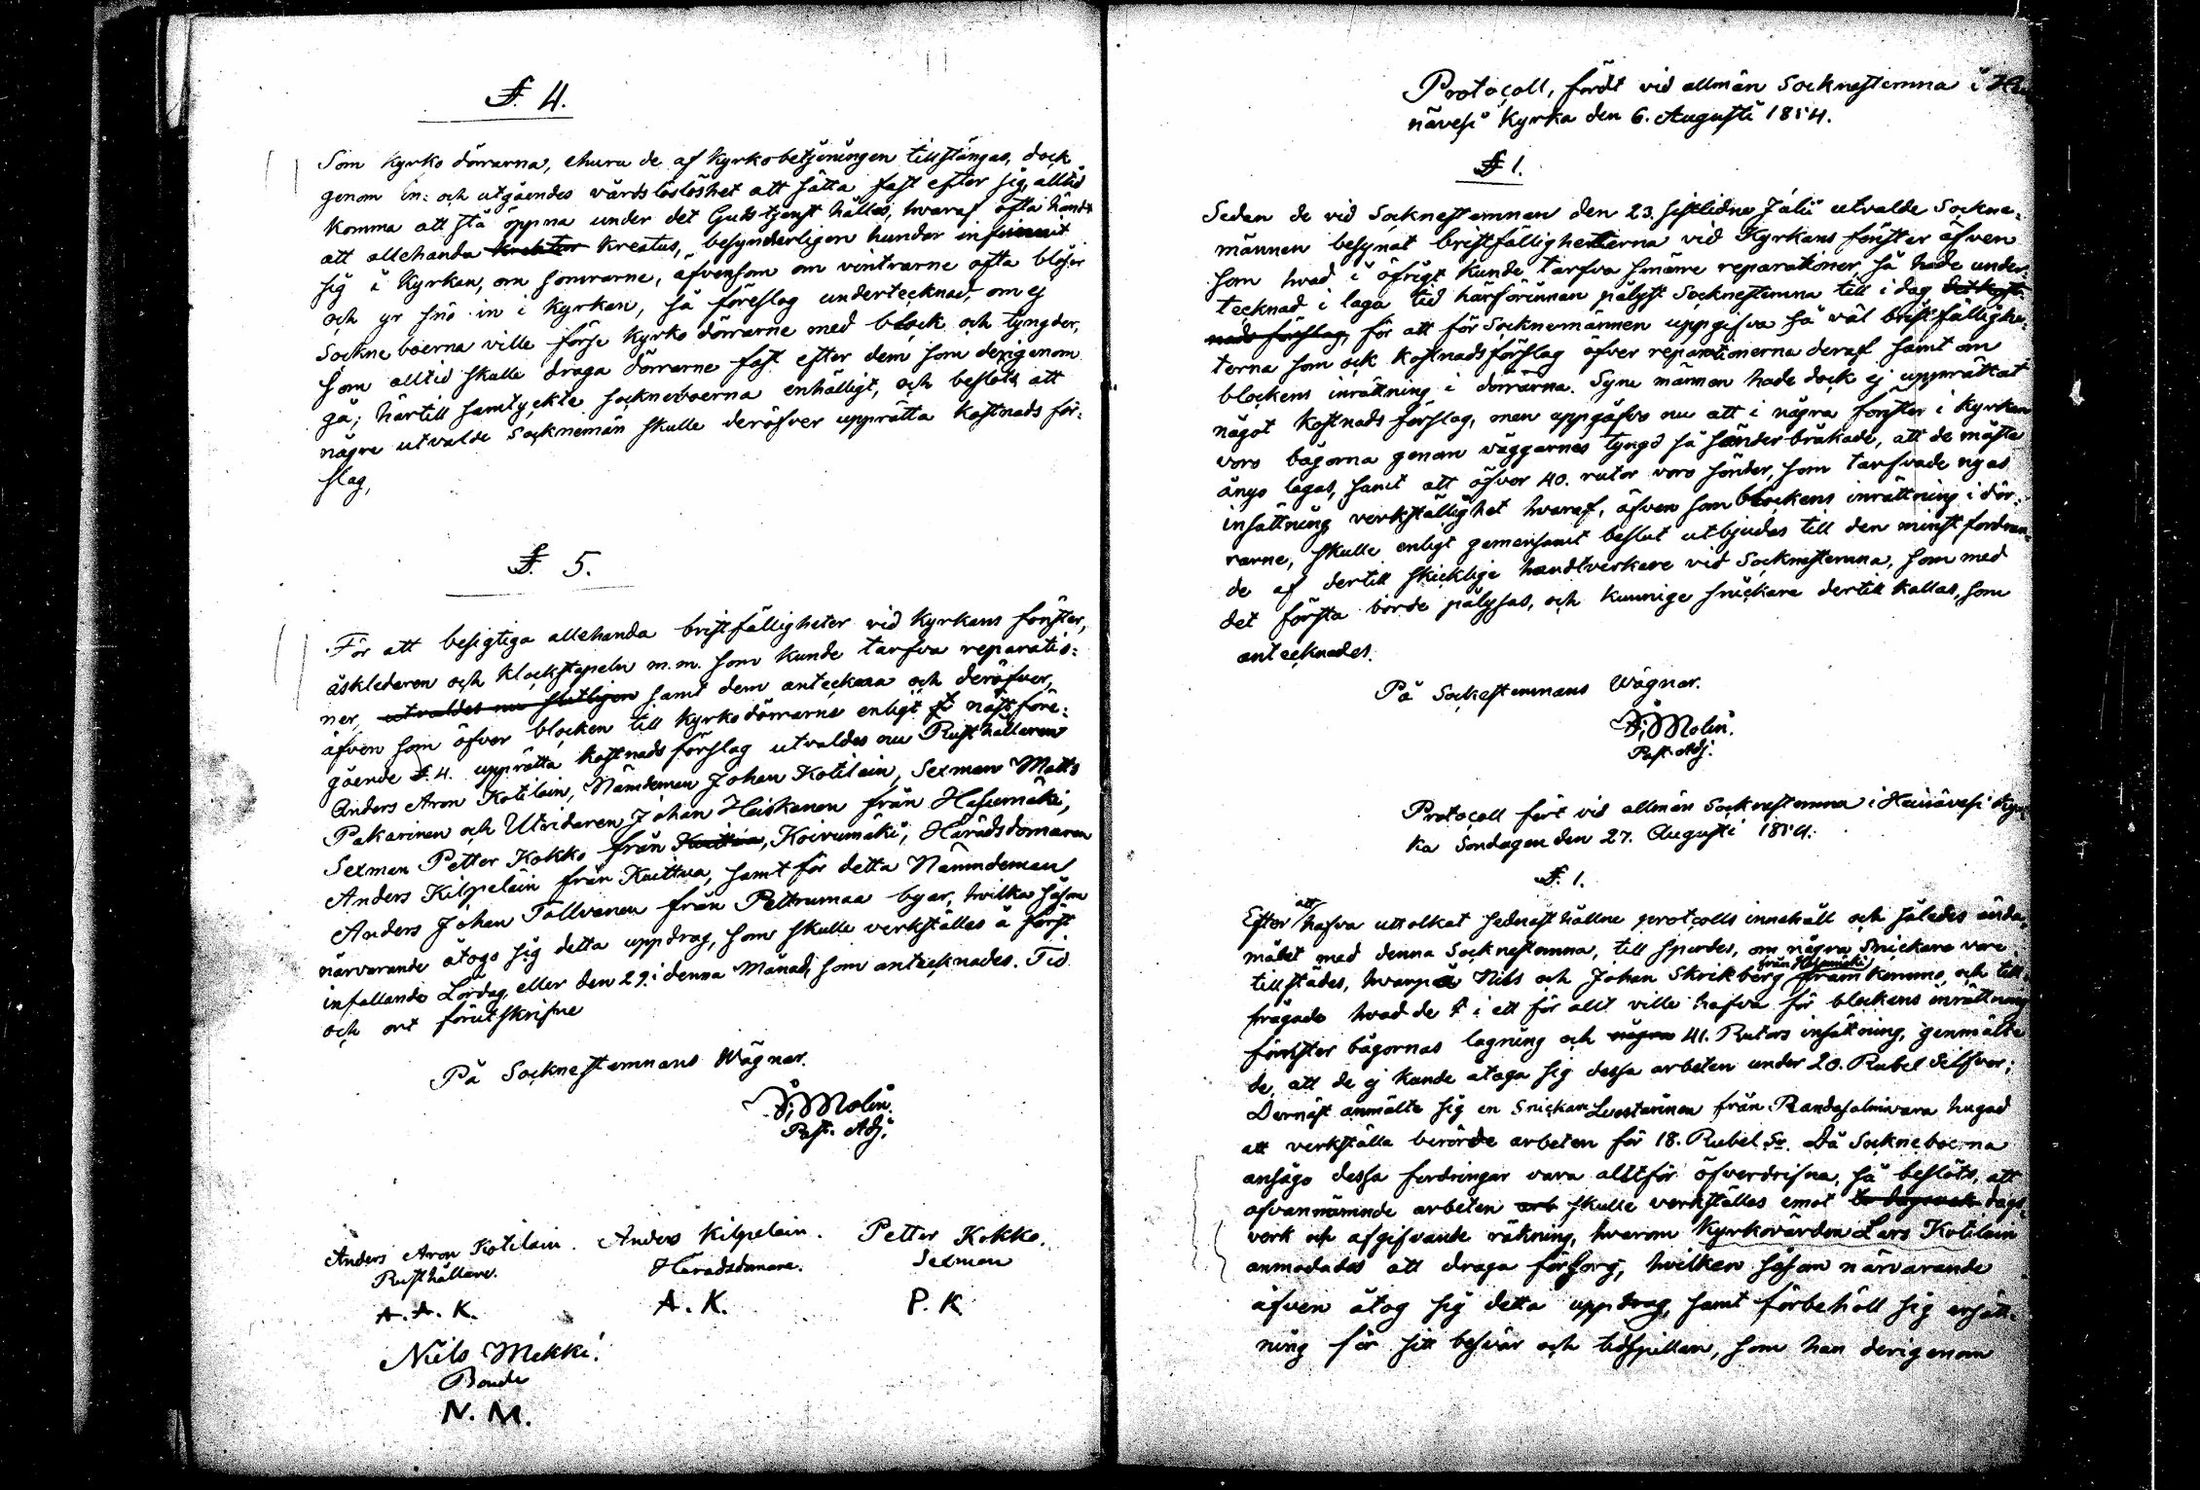 §. 4.
Som Kyrko dörrarna, ehuru de af Kyrkobetjeningen tillstängas, dock
genom in: och utgåendes vårdslöslöshet att sätta fast efter sig, alltid
komma att stå öppna under det Gudstjenst hålles, hvaraf ofta händt
att allehanda kreatur, besynderligen hundar
sig i Kyrkan, om somrarne, äfvensom om vintrarne ofta blåser
och yr snö in i Kyrkan, så föreslog undertecknad, om ej
Sockneboerna ville förse Kyrko dörrarne med block och tyngder,
som alltid skulle draga dörrarne fast efter dem som derigenom
gå; härtill samtyckte sockneboerna enhälligt, och beslöts att
några utvalde Socknemän skulle deröfver upprätta kostnads för:
slag,
§. 5.
För att besigtiga allehanda bristfälligheter vid Kyrkans fönster,
åskledaren och klockstapeln m.m. som kunde tarfva reparatio:
ner, utvaldes nu slutligen samt dem anteckna och deröfver,
äfven som öfver blocken till Kyrko dörrarne enligt näst före:
gående §. 4. upprätta kostnads förslag utvaldes nu Rusthållaren
Anders Aron Kotilain, Nämdeman Johan Kotilain, Sexman Matts
Pakarinen och Utridaren Johan Heiskanen från Hasumäki,
Sexman Petter Kokko från Koivumäki, Häradsdomaren
Anders Kilpeläin från Kuittua, samt för detta Nämndeman
Anders Johan Tallvanen från Pettrumaa byar, hvilka såsom
närvarande åtogo sig detta uppdrag, som skulle verkställas å först
infallande Lördag, eller den 29. i denna Månad, som antecknades. Tid
och ort förutskrifne
På Socknestemmans Wägnar.
Molin.
Past. Adj.
Anders Aron Kotilain. Anders Kilpelain. Petter Kokko.
Rusthållare. Häradsdomare. Sexman
A. A. K. A. K. P. K
Niels Mekki.
Bonde
N. M.
Protocoll, fördt vid allmän Socknestemna i
nävesi Kyrka den 6. Augusti 1854.
§ 1.
Sedan de vid Socknestemnan den 23. sistlidne Julii utvalde Sockne:
männen besynat bristfälligheterna vid Kyrkans fönster äfven
som hvad i öfrigt kunde tarfva smärre reparationer, så hade under:
tecknad i laga tid härförinnan pålyst Socknestemna till i dag
nads förslag, för att för Socknemännen uppgifva så väl bristfällighe:
terna som ock kostnadsförslag öfver reparationerna deraf samt om
blockens inrättning i dörrarna. Syne männen hade dock ej upprättat
något kostnads förslag, men uppgåfvo nu att i några fönster i Kyrkan
voro bågorna genom väggarnes tyngd så sönder bråkade, att de måste
ånyo lagas, samt att öfver 40. rutor voro sönder, som tarfvade nyas
insättning, verkställighet hvaraf, äfven som blockens inrättning i dör:
rarne, skulle enligt gemensamt beslut utbjudas till den minst fordran:
de af dertill skicklige handtverkare vid Socknestemna, som med
det första borde pålysas, och kunnige snickare dertill kallas, som
antecknades.
På Sockestemmans Wägnar.
Molin.
Past. Adj.
Protocoll fört vid allmän Socknestemna i Heinävesi Kyr:
ka Söndagen den 27. Augusti 1854.
§. 1.
Efter att hafva uttolkat sednast hållne protocolls innehåll och således ända:
målet med denna Socknestemna, till spordes, om några Snickare vore
tillstädes, hvarpå Nils och Johan Skrikberg
från Hasumäki
fram kommo, och till
frågade hvad de i ett för allt ville hafva för blockens inrättning
fönster bågornas lagning och några 41. Rutors insättning, genmälte
de, att de ej kunde åtaga sig dessa arbeten under 20. Rubel Silfver;
Dernäst anmälte sig en Snickare från Randasalmivara hugad
att verkställa berörde arbeten för 18. Rubel Sr. Då Sockneboerna
ansågo dessa fordringar vara alltför öfverdrifna, så beslöts, att
ofvannämnde arbeten skulle verkställas emot dags:
verk och afgifvande räkning, hvarom Kyrkovärden Lars Kotilain
anmodades att draga försorg, hvilken såsom närvarande
äfven åtog sig detta uppdrag, samt förbehöll sig ersätt:
ning för sitt besvär och tidspillan, som han derigenom